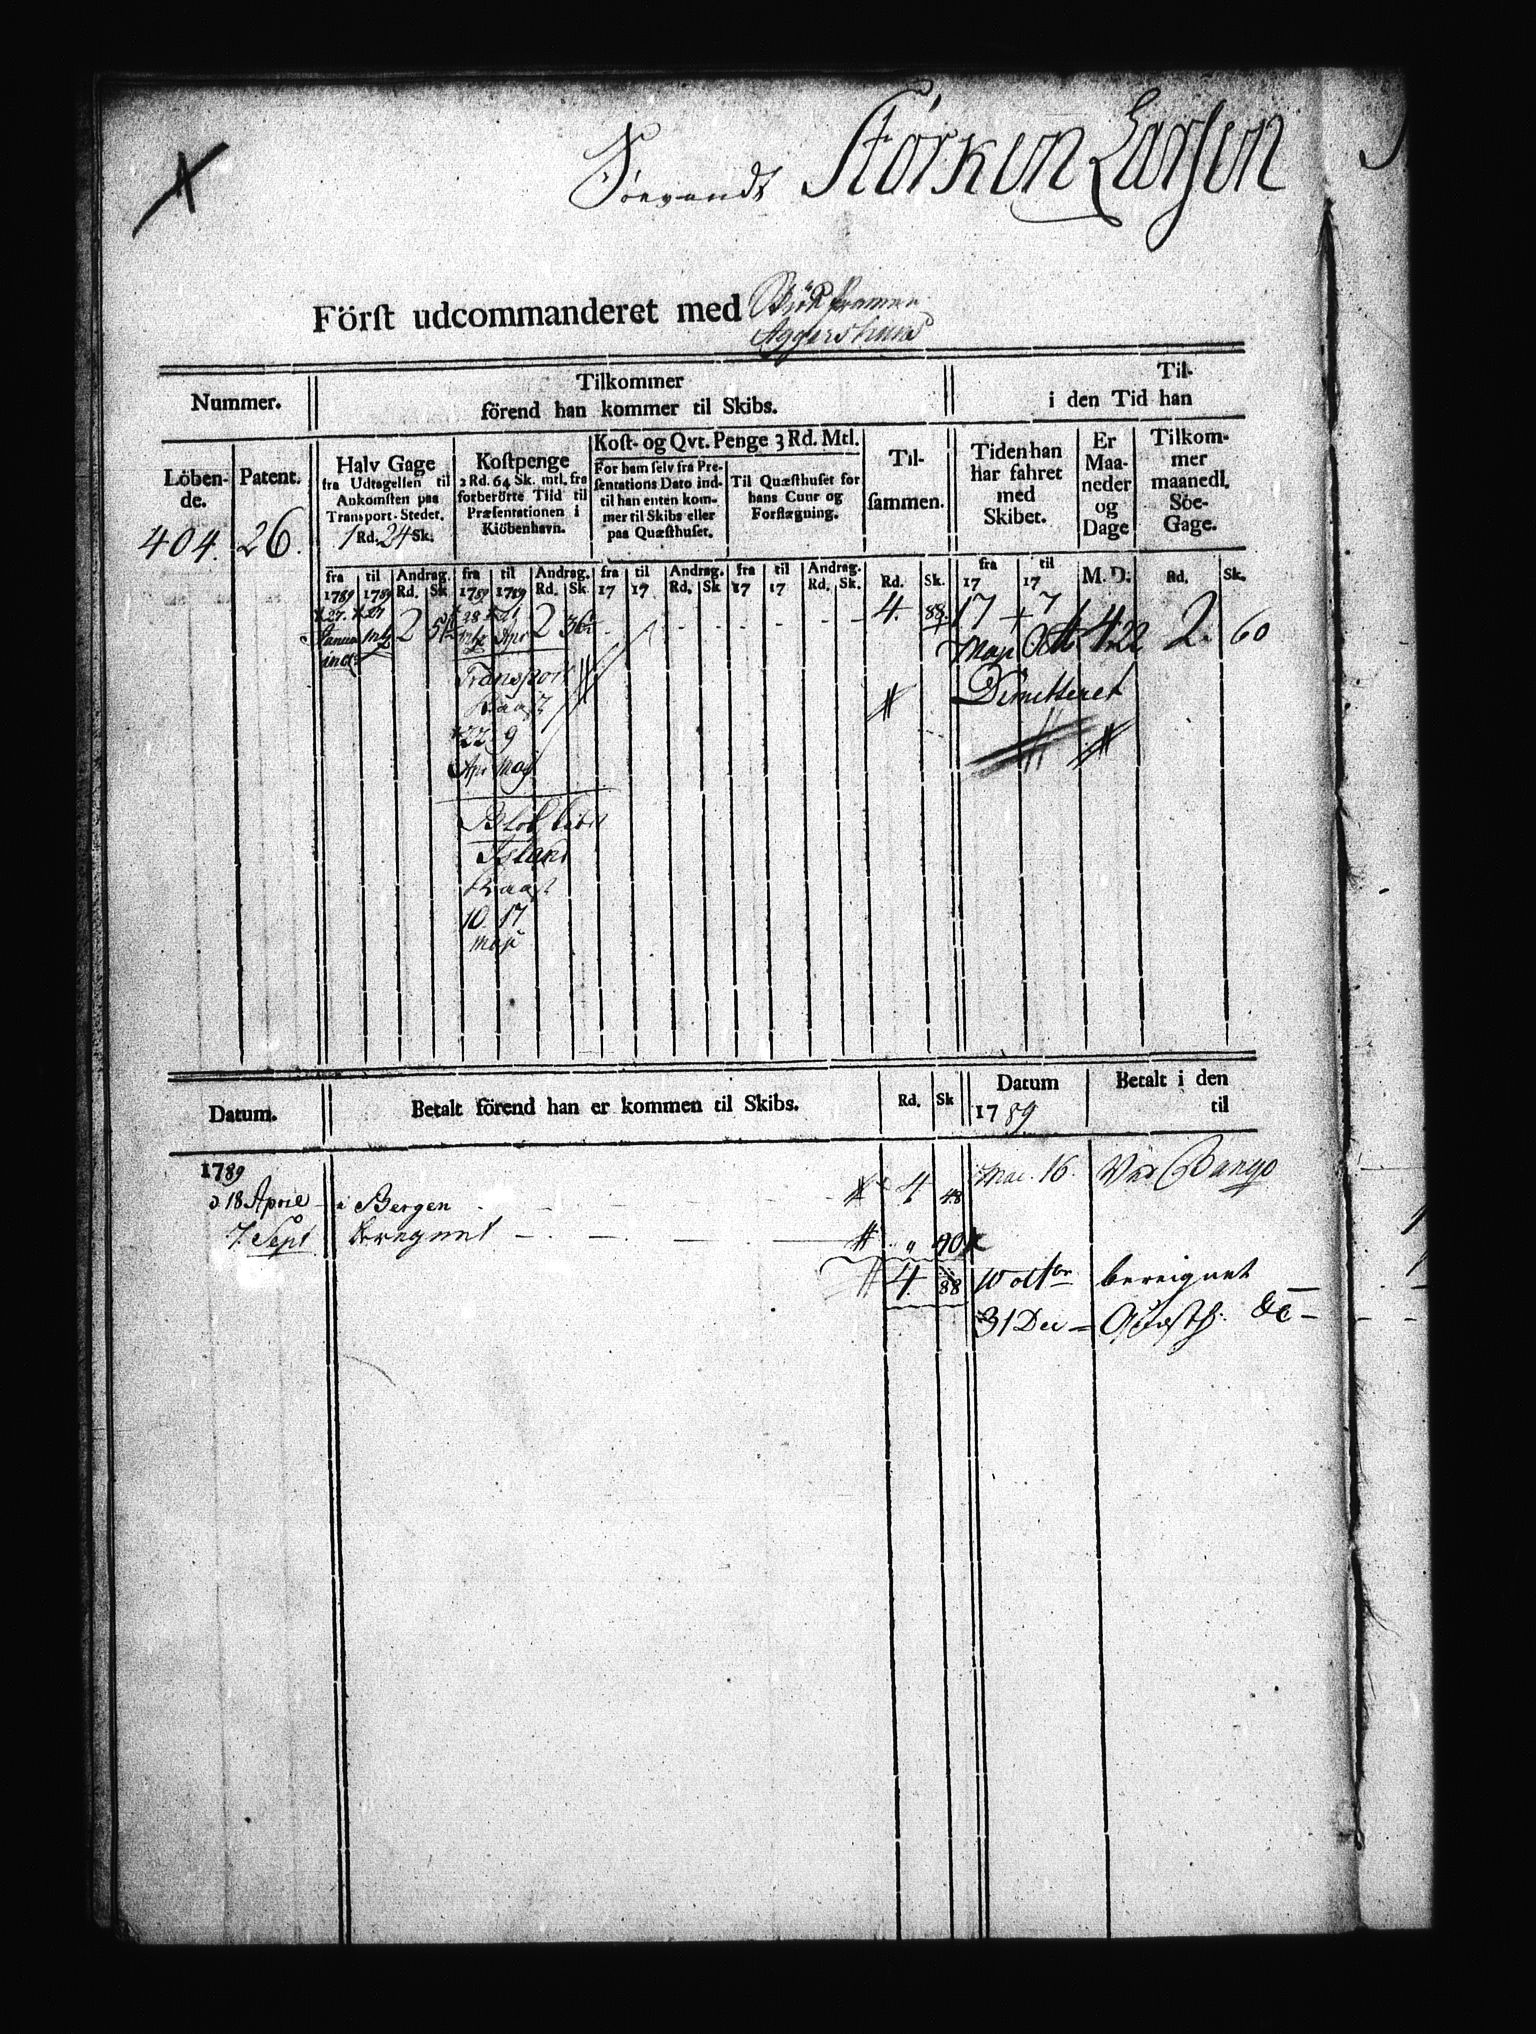 Söevandt Störken Larsen
Först udcommanderet med Blokpramen
Aggershuus
Nummer.
Tilkommer
förend han kommer til Skibs.
Til-
i den Tid han
Löben-
de.
404.
Patent.
26.
Halv Gage
fra Udtagelsen til
Ankomsten paa
Transport-Stedet.
1 Rd. 24 Sk.
Kostpenge
2 Rd. 64 Sk. mtl. fra
forberörte Tiid til
Præsentationen i
Kiöbenhavn.
Kost- og Qvt. Penge 3 Rd. Mtl.
For ham selv fra Pre-
sentations Dato ind-
til han enten kom-
mer til Skibs eller
paa Quæsthuset.
Til Quæsthuset for
hans Cuur og
Forflægning.
Til-
sammen.
Tiden han
har fahret
med
Skibet.
Er
Maa-
neder
og
Dage
Tilkom-
mer
maanedl.
Söe-
Gage.
fra til Andrag. fra til Andrag. fra til Andrag. fra til Andrag. fra til
1789 1789 Rd. Sk 1789 1789 Rd. Sk. 17 17 Rd. Sk 17 17 Rd. Sk. Rd. Sk. 17 17 M. D. Rd. Sk.
27. 27 2 28 21 2 36 4. 88 17 7 4 22 2. 60
Januar Apr Maji Oct
Transport Dimitteret
22 9
Apr Maj
Island
10 17
Maji
Datum. Betalt förend han er kommen til Skibs. Rd. Sk Datum Betalt i den
1789 til
1789
d 18 April i Bergen 4 48 Mai. 16. Ved Bange
7. Sept beregnet " 40
4 88 10 octbr bereignet
31 Dec Qvæsth. &c